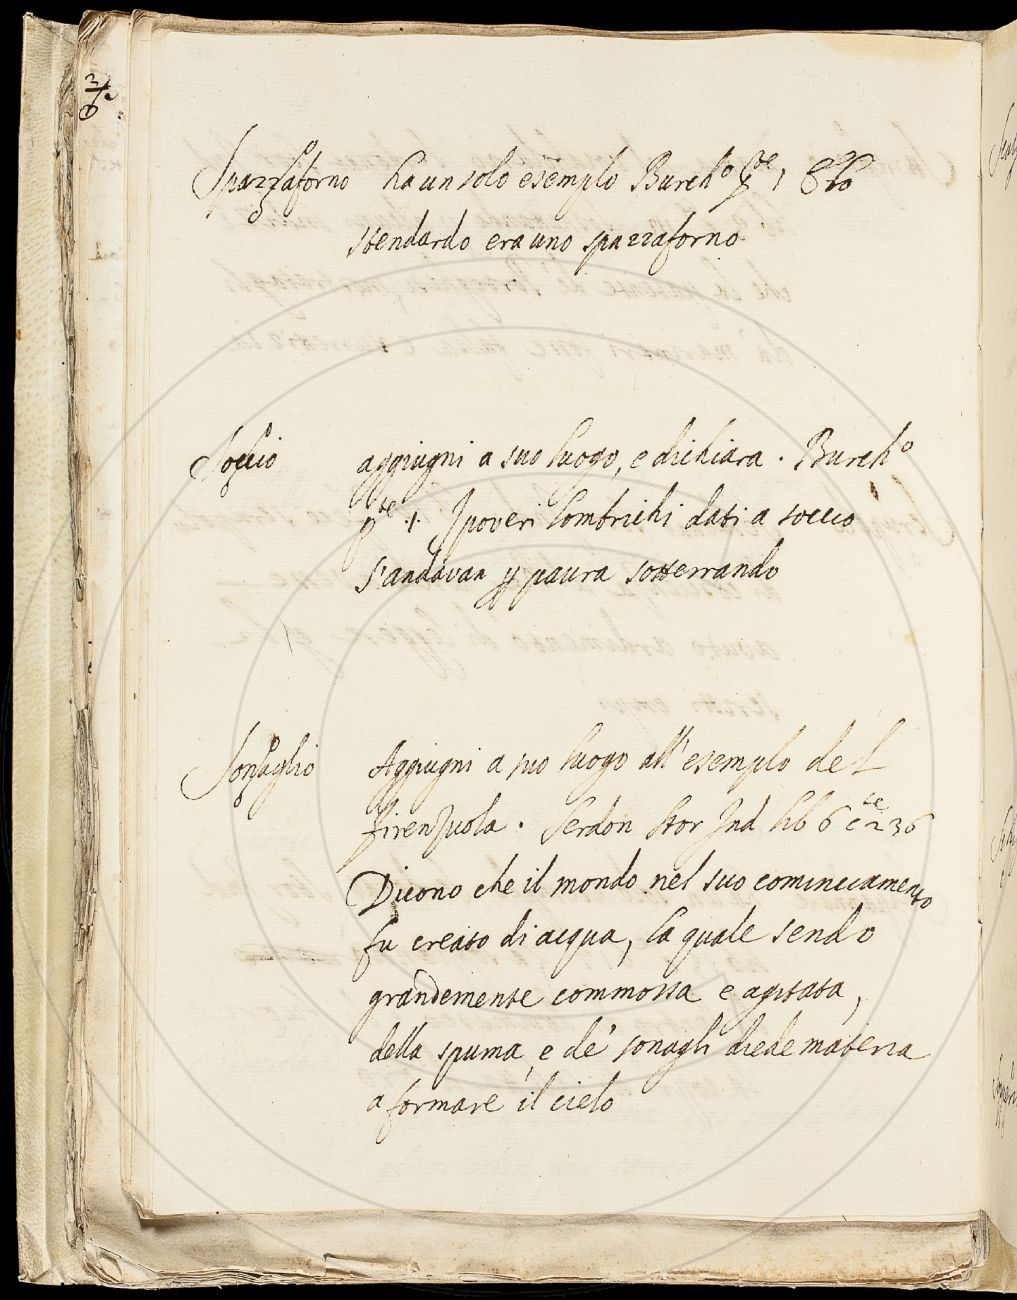 Spazzaforno ha un solo esẽmplo Burch.o p.te 1
stendardo era uno spazzaforno.
Soccio aggiugni a suo luogo, e dichiara. Burch.o
p.te 1. I poveri lombrichi dati a soccio
s'andavan p paura sotterrando
Sonaglio Aggiugni a suo luogo all'esemplo del
firenzuola. Serdon Stor Ind lib 6 c.te 236
Dicono che il mondo nel suo cominciamento
fu creato di acqua, la quale sendo
grandemente commossa e agitata,
della spuma, e de' sonagli diede materia
a formare il cielo